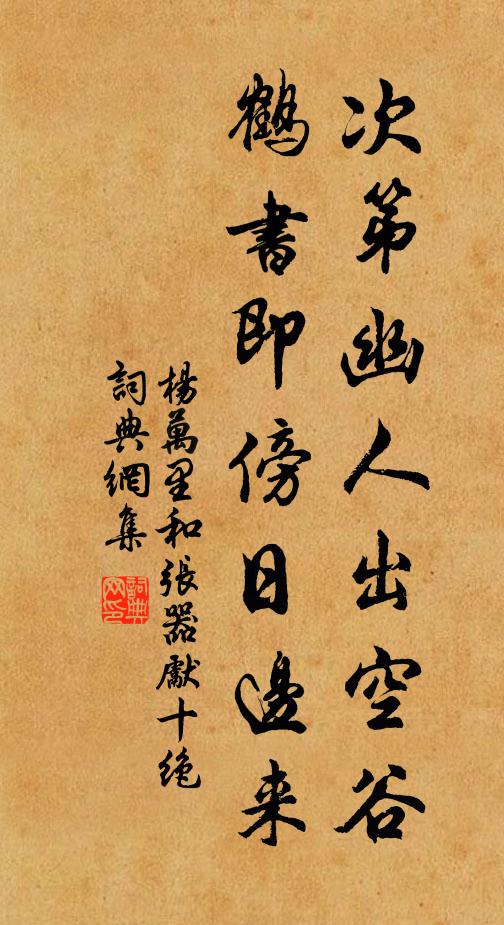 次第幽人出空谷
鶴書即傍日邊来
楊萬里和張器獻十绝
詞典網集
詞典網印